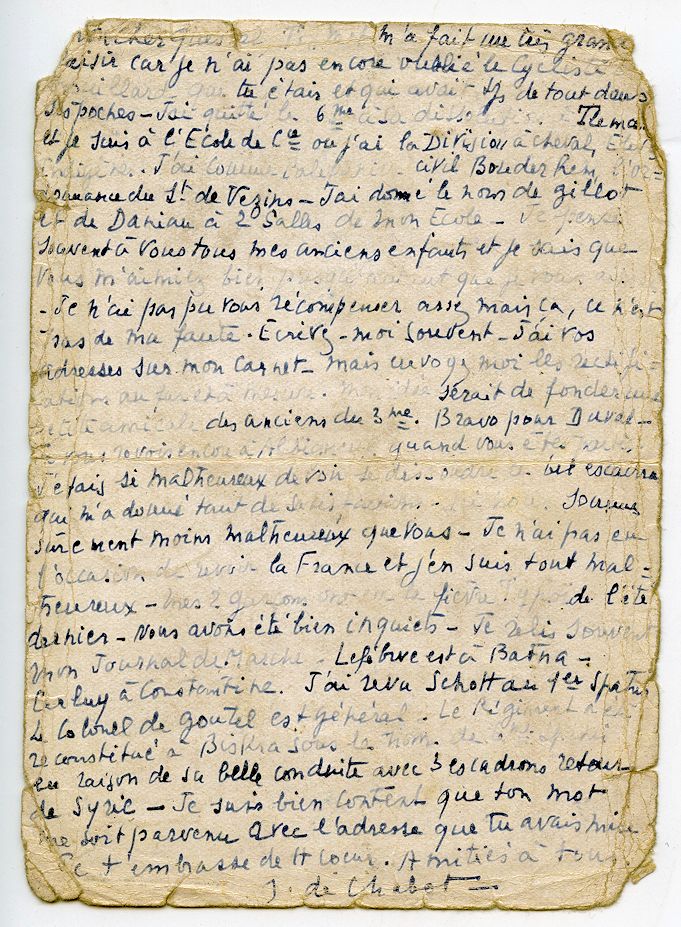 m'a fait un très grand
car je n'ai pas encore oublié le Cycliste
que tu étais et qui avait de tout dans
ses poches – J'ai quitté le 6me à sa dissolution
et je suis à l'École de Cie où j'ai la Division à cheval,
J'ai comme civil Bouderhem, l'or=
donnance du Lt de Vezins – J'ai donné le nom de Gillot
et de Daniau à 2 Salles de mon École – Je pense
souvent à vous tous mes anciens enfants et je sais que
vous m'aimiez bien que je vous
– Je n'ai pas pu vous récompenser assez mais ça, ce n'est
pas de ma faute. Ecrivez-moi souvent – J'ai vos
adresses sur mon carnet – mais envoyez moi les rectifi=
cations au fur et à mesure. Mon idée serait de fonder une
petite amicale des anciens du 3me. Bravo pour Duval –
Je vous revois encore quand vous êtes
J'étais si malheureux de voir se dissoudre ce bel escadron
qui m'a donné tant de satisfactions.
sûrement moins malheureux que vous – Je n'ai pas eu
l'occasion de revoir la France et j'en suis tout mal=
heureux – Mes 2 garçons ont eu la fièvre de l'été
dernier – Nous avons été bien inquiets – Je relis souvent
mon Journal de Marche – Lefebvre est à Batna –
à Constantine. J'ai revu Schott au 1er Spahis
Le Colonel de Goutel est général. Le Régiment a été
reconstitué à Biskra sous le nom de
en raison de sa belle conduite avec 3 escadrons retour
de Syrie – Je suis bien content que ton mot
me soit parvenu avec l'adresse que tu avais mise
Je t'embrasse de tt coeur. Amitiés à tous.
J. de Chabot –